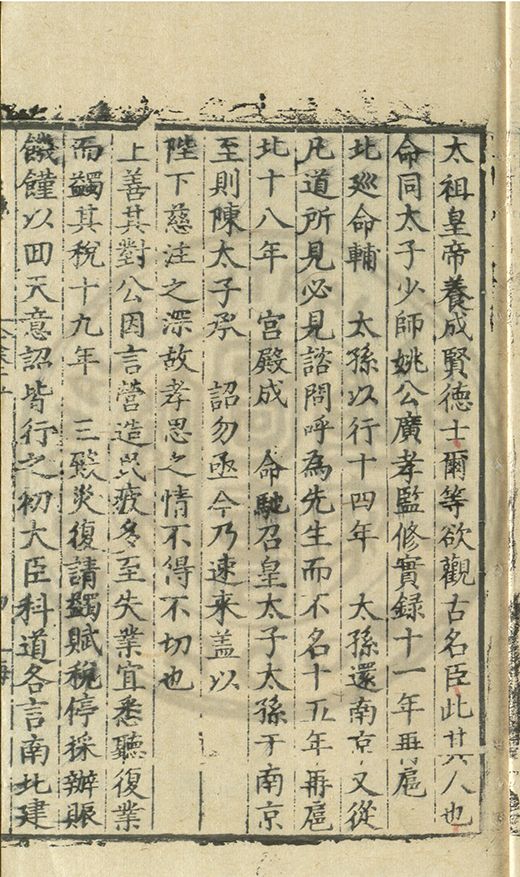 太祖皇帝養成賢德士爾等欲觀古名臣此其人也
命同太子少師姚公廣孝監修實録十一年再扈
北廵命輔　太孫以行十四年　太孫還南京又從
凡道所見必見諮問呼為先生而不名十五年再扈
北十八年　宮殿成　命馳召皇太子太孫于南京
至則陳太子承　詔勿亟今乃速来盖以
陛下慈注之深故孝思之情不得不切也
上善其對公因言營造民疲多至失業宜悉聽復業
而蠲其稅十九年　三殿災復請蠲賦稅停採辦賑
饑饉以回天意詔皆行之初大臣科道各言南北建